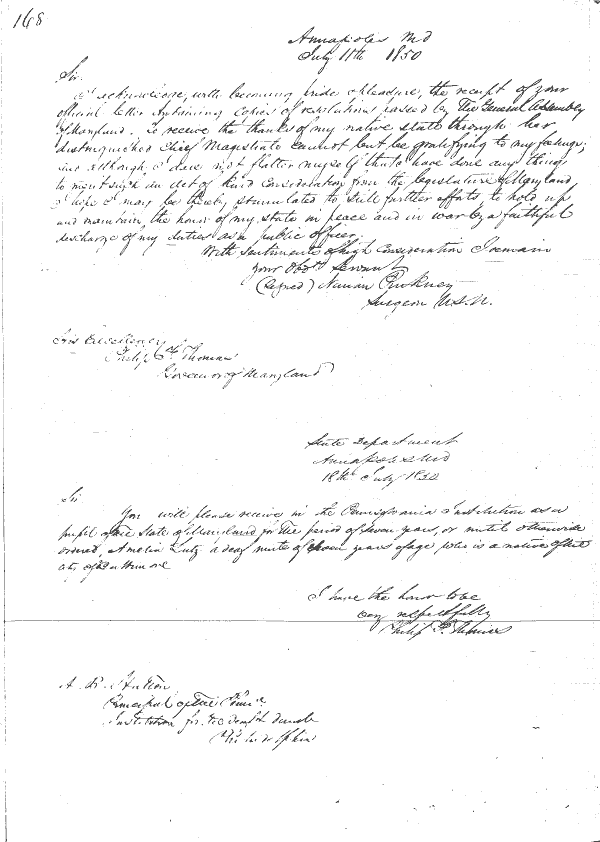 168
Annapolis Md
July 11th 1850
Sir.
I acknowledge, with becoming pride & pleasure, the receipt of your
official letter containing Copies of resolutions passed by The General Assembly
of Maryland. To receive the thanks of my native state through her
distinguished Chief Magistrate cannot but be gratifying to my feelings;
and although I dare not flatter myself that I have done any thing
to merit such an act of kind consideration from the legislature of Maryland
I hope I may be thereby stimulated to still further efforts to hold up
and maintain the honor of my state in peace and in war by a faithful
discharge of my duties as a public officer.
With Sentiments of high Consideration I remain
your Obdt Servant
(Signed) Ninian Pinkney
Surgeon U.S.N.
His Excellency
Philip F. Thomas
Governor of Maryland
State Department
Annapolis Md
18th July 1850
Sir
You will please receive in the Pennsylvania Institution as a
pupil of the State of Maryland for the period of seven years, or until otherwise
ordered, Amelia Lutz a deaf mute of years of age, who is a native of the
City of Baltimore
I have the honor to be
very respectfully
Philip F. Thomas
A. B. Hutton
Principal of the Penna.
Institution for the Deaf & Dumb
Philadelphia